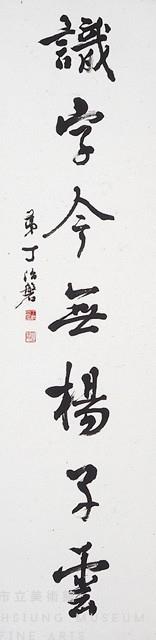 識字今無楊子雲
弟丁治磐
市立美術館
HSIUNG MUSEUM
FINE ARTS